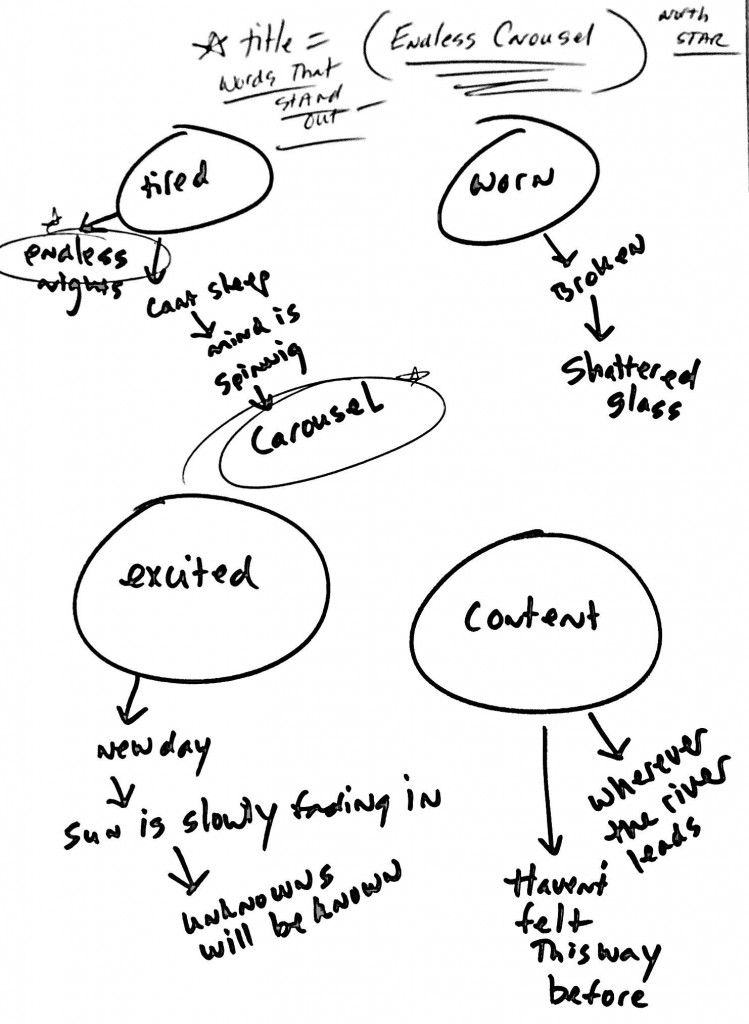 ☆ title = (Endless Carousel) North
STAR
words That
STAND
OUT
tired
worn
☆
endless
nights
cant sleep
mind is
spinnig
☆
Carousel
Broken
Shattered
glass
excited
content
new day
sun is slowly fading in
unknowns
will be known
wherever
the river
leads
Havent
felt
This way
before